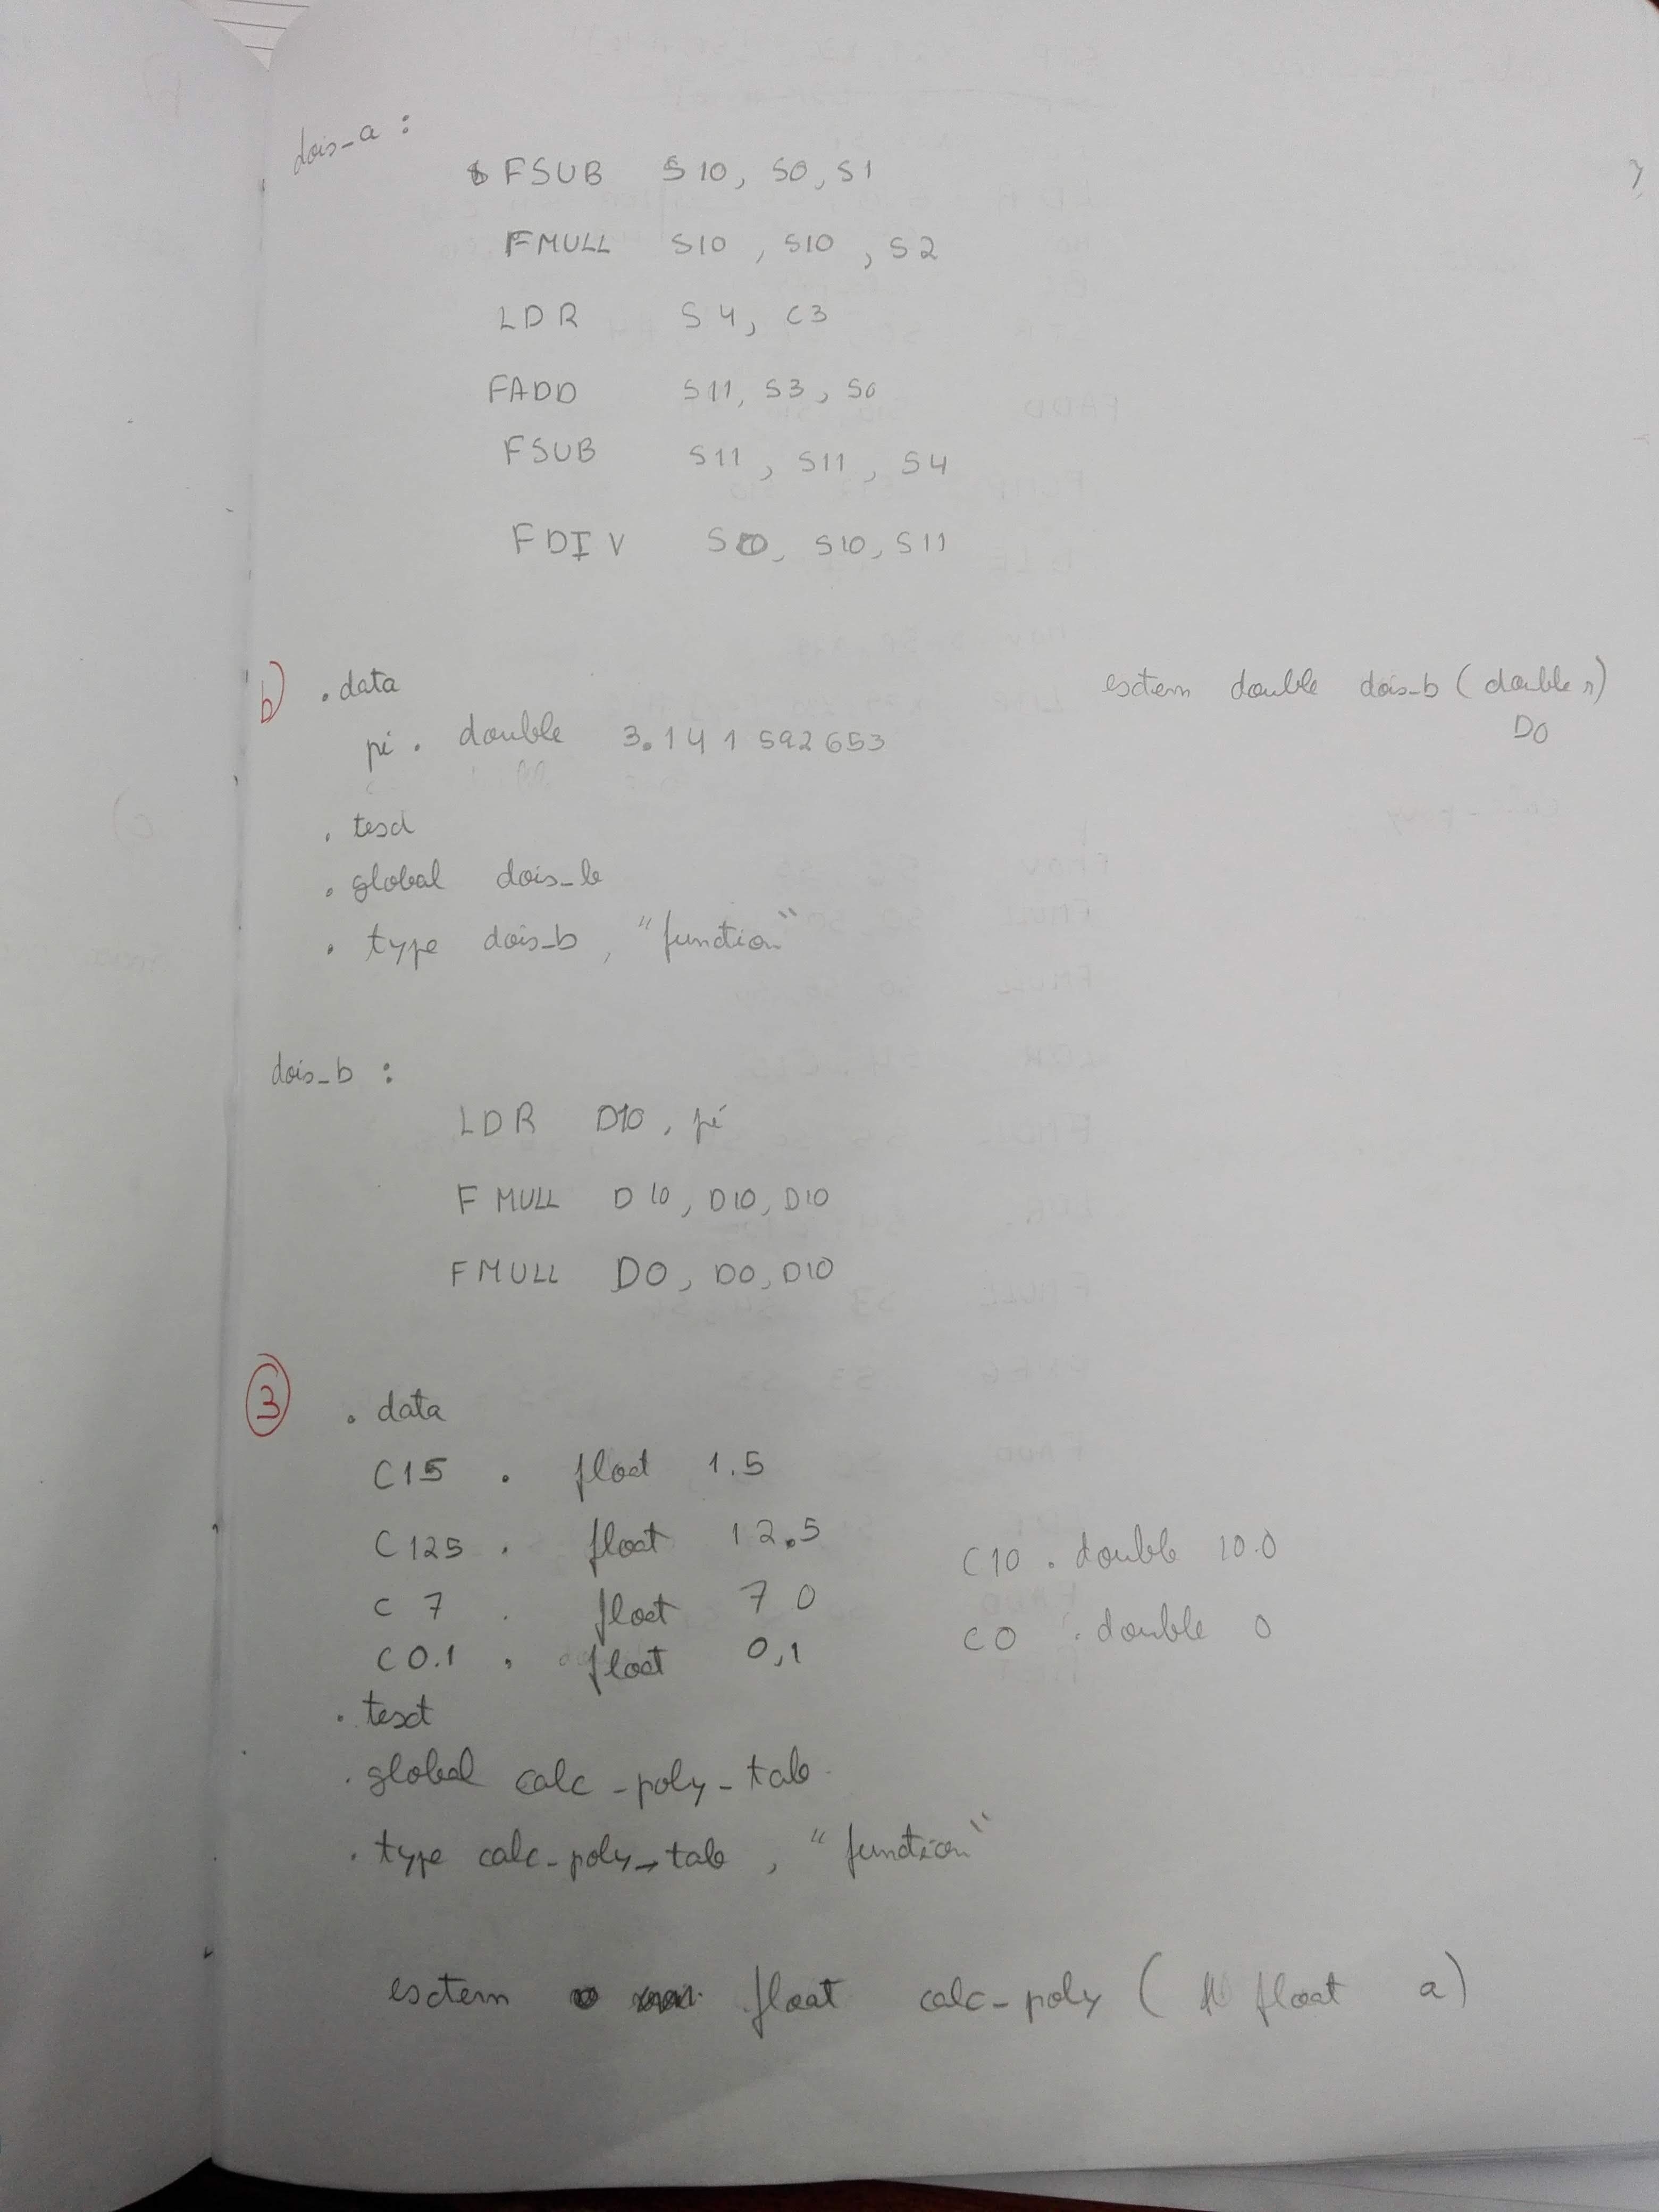 dois_a :
FSUB S10, S0, S1
FMULL S10, S10, S2
LDR S4, C3
FADD S11, S3, S0
FSUB S11, S11, S4
FDIV S0, S10, S11
b) .data extern double dois_b (double r)
pi . double 3.141592653 D0
. text
. global dois_b
. type dois_b, "function"
dois_b :
LDR D10, pi
FMULL D10, D10, D10
FMULL D0, D0, D10
3 . data
C15 . float 1.5
C125 . float 12.5 C10 . double 10.0
C7 . float 7 0 C0 . double 0
C0.1 . float 0,1
. text
. global calc_poly_tab
. type calc_poly_tab, "function"
extern float calc_poly ( float a)